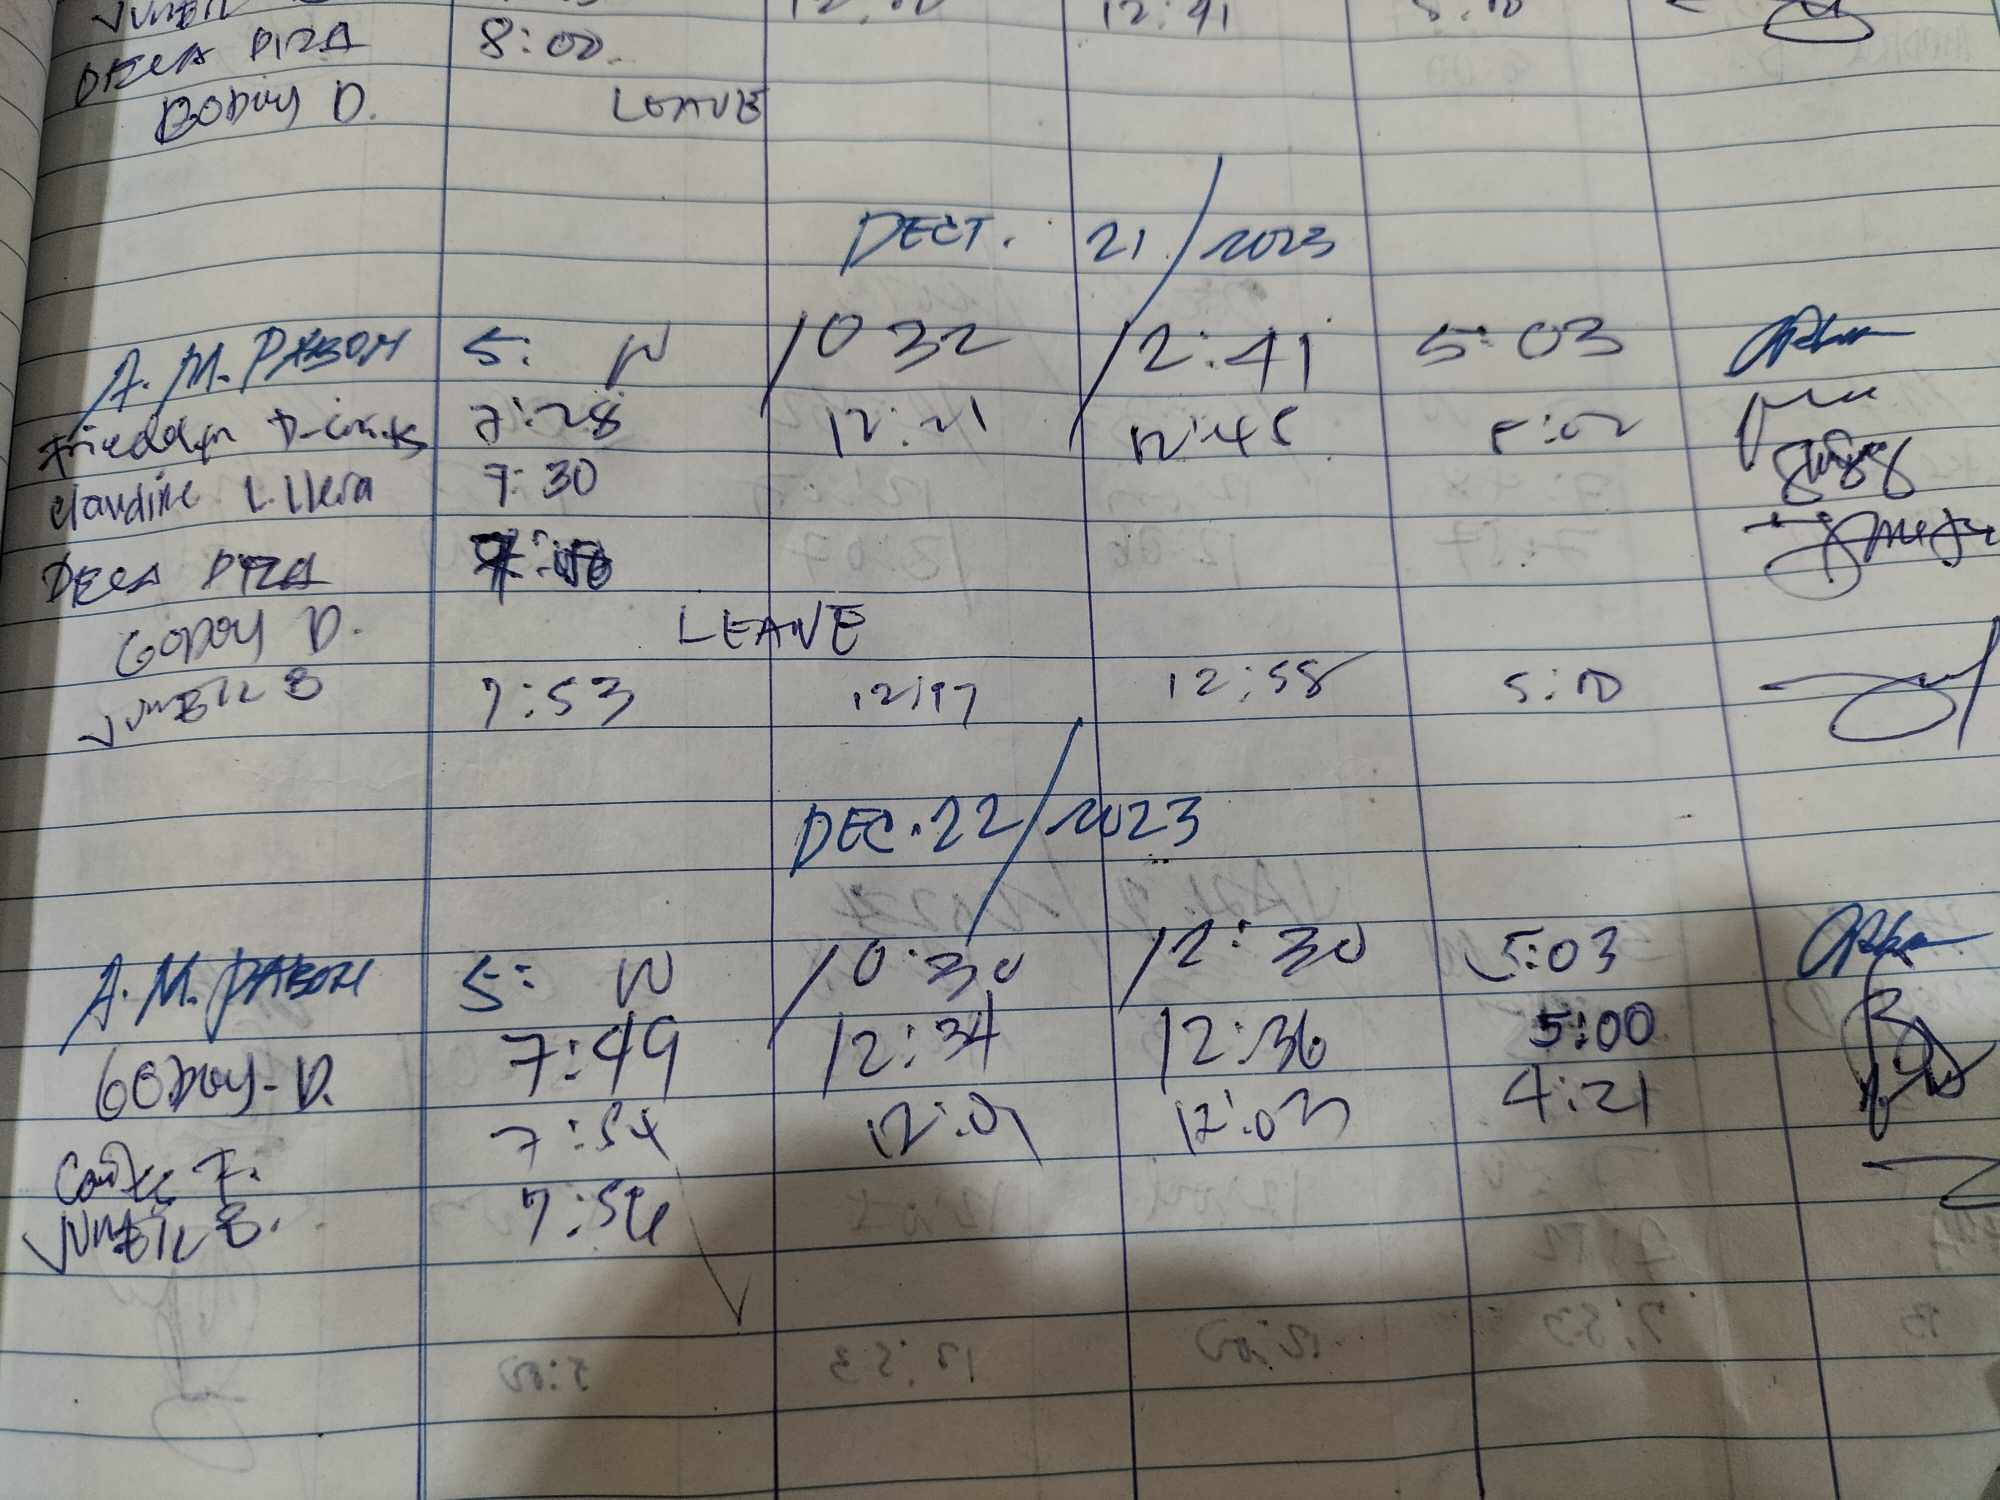 12:41
DECA PIZA 8:00
GODOY D. LEAVE
DECT. 21/2023
A. M. PABON 5: W 10 32 12:41 5:03
7:28 12:21 12:45 5:02
claudine L. llera 7:30
DECA PIZA
GODOY D. LEAVE
JUMBIL B 7:53 12:17 12:58 5:10
DEC. 22/2023
A. M. PABON 5: W 10:30 12:30 5:03
GODOY-D. 7:49 12:34 12:36 5:00
F. 7:54 12:01 12:03 4:21
JUMBIL B. 7:56